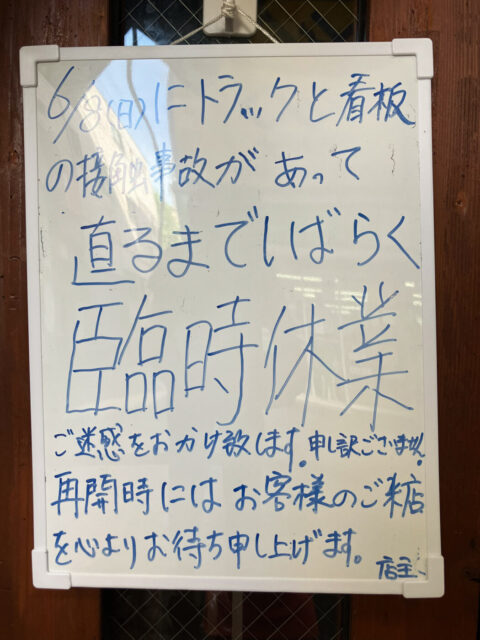 6/8(日)にトラックと看板
の接触事故があって
直るまでしばらく
臨時休業
ご迷惑をおかけ致します。申し訳ございません。
再開時にはお客様のご来店
を心よりお待ち申し上げます。
店主、